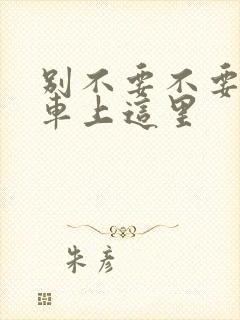 別不要不要
車上這里
朱彥